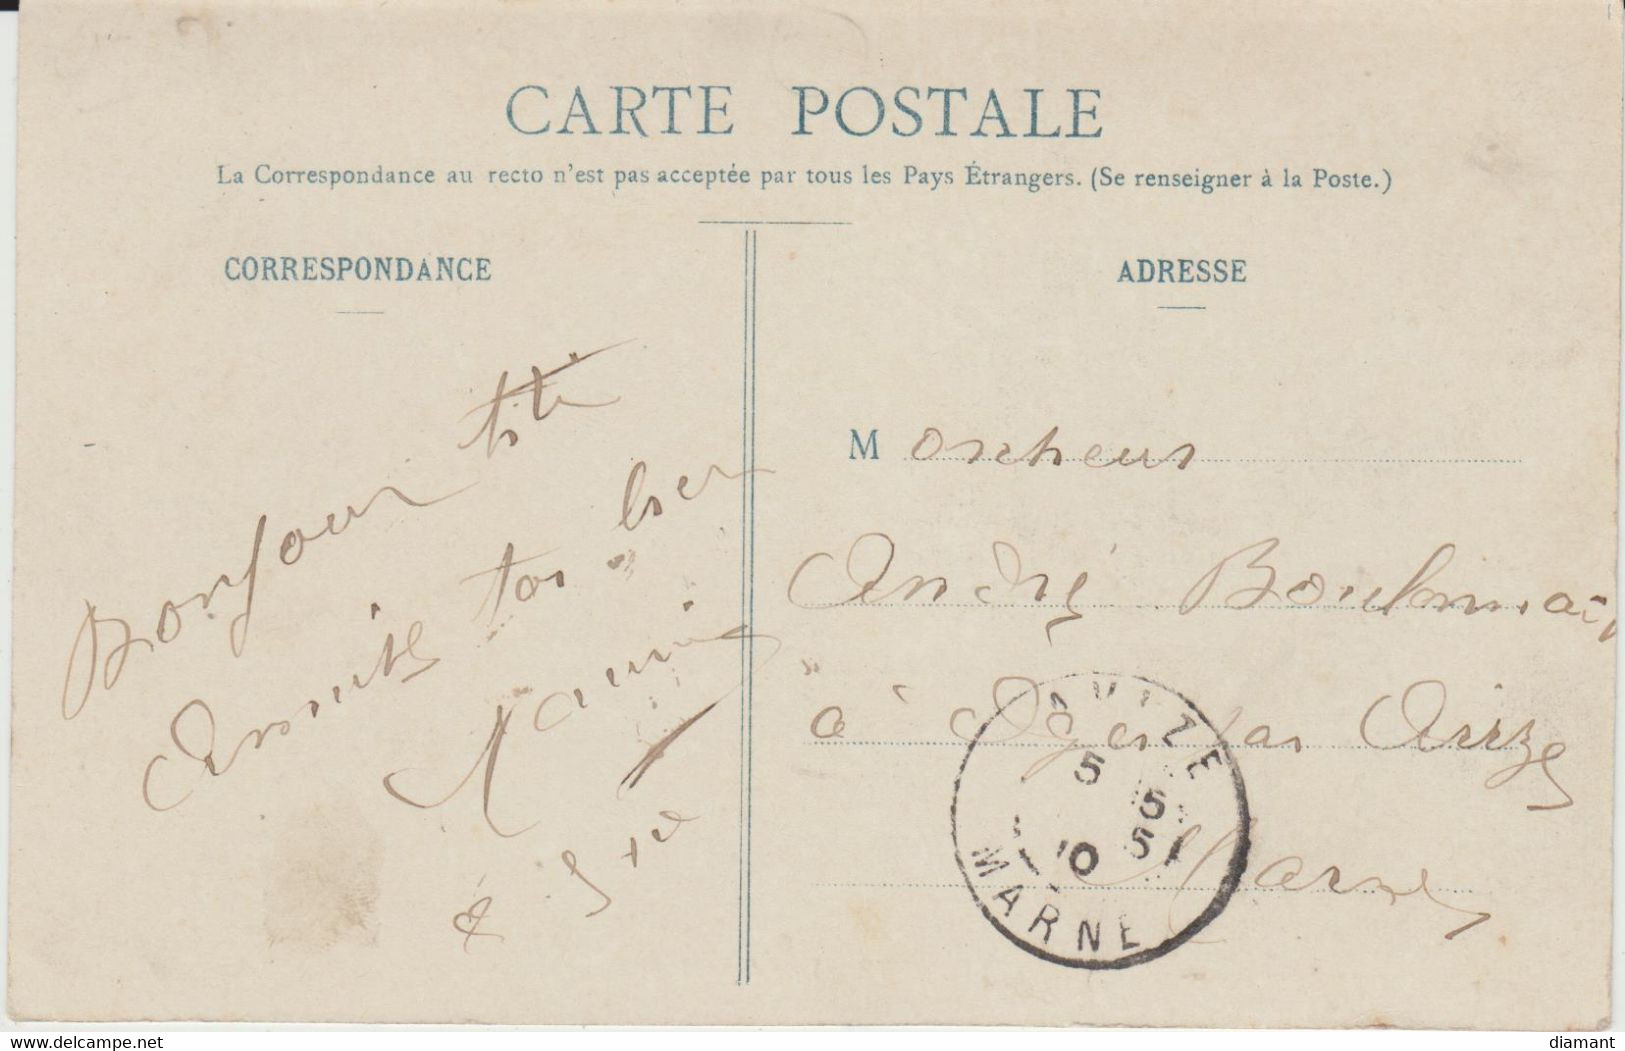 CARTE POSTALE
La Correspondance au recto n'est pas acceptée par tous les Pays Étrangers. (Se renseigner à la Poste.)
CORRESPONDANCE
ADRESSE
Bonjour
Amitiés
Monsieur
André
à Oger par Avize
Marne
AVIZE
5 5
10 5
MARNE
www.delcampe.net
diamant